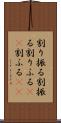 割り振る割振
る割りふる
割ふる